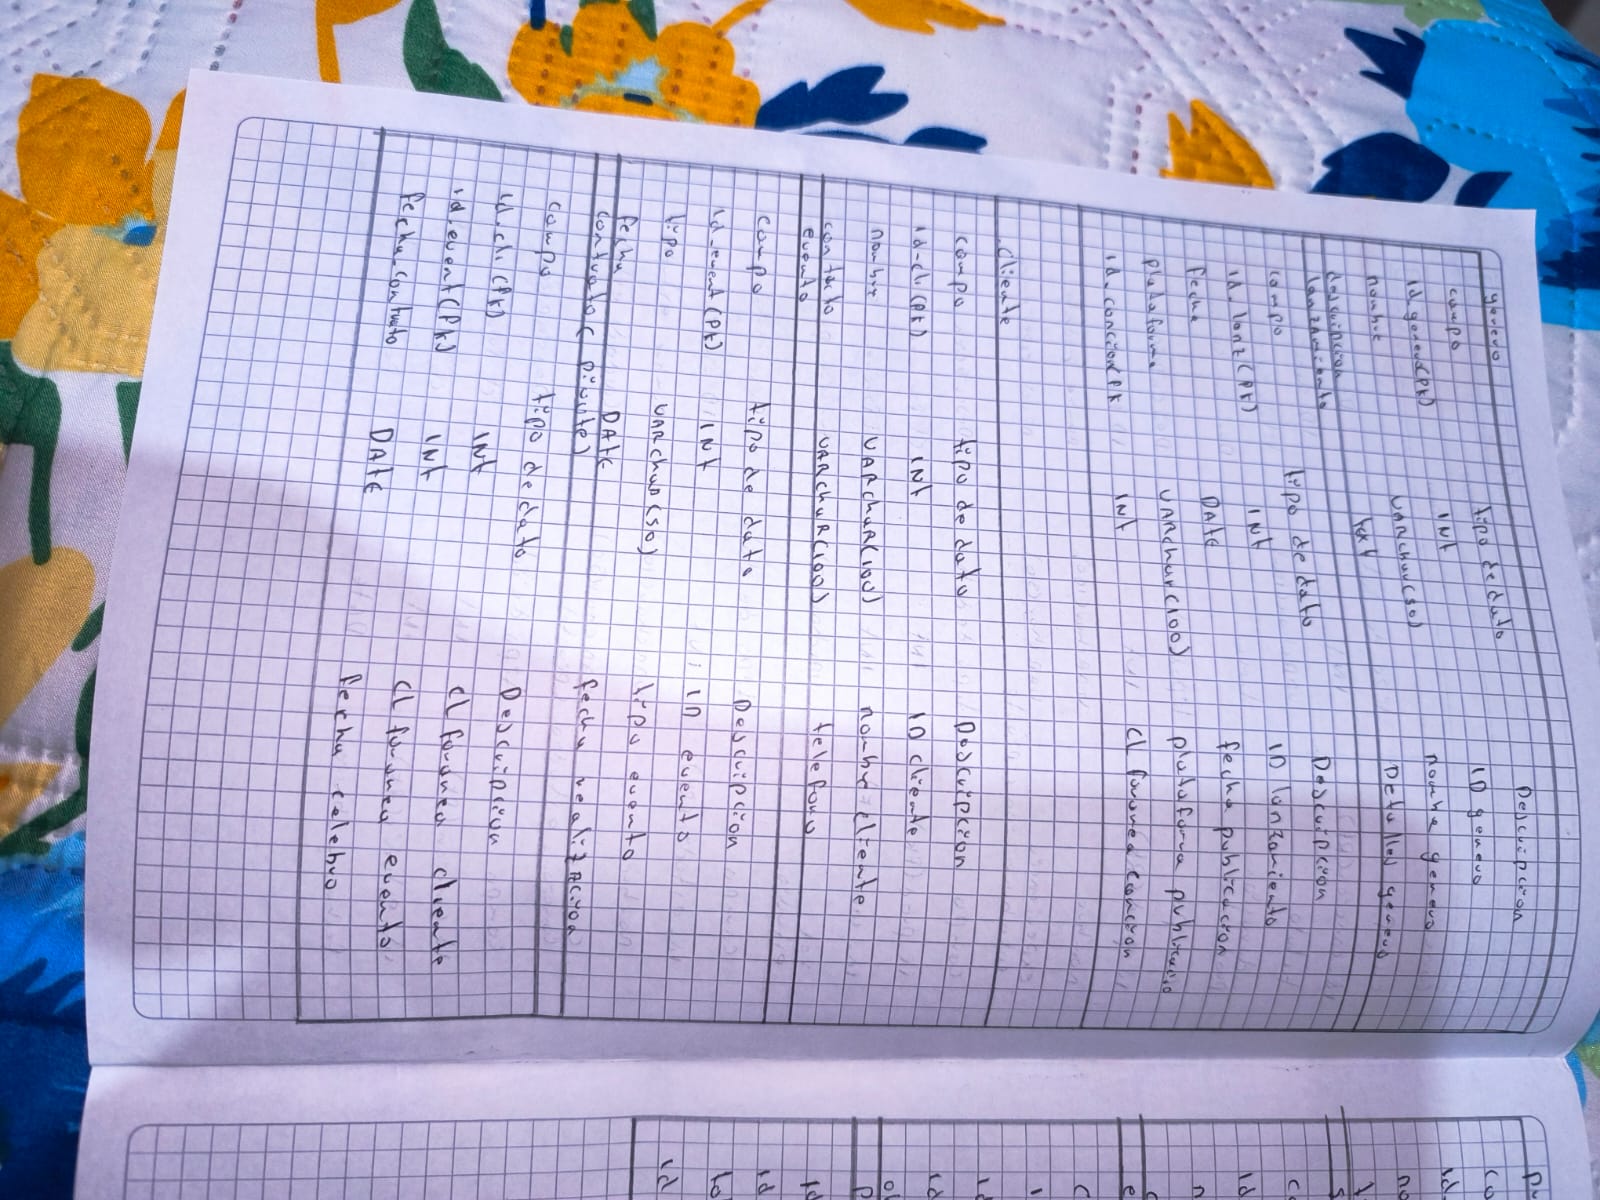 genero
campo tipo de dato Descripcion
id genero(Pk) INt ID genero
nombre VARchar(50) nombre genero
descripcion text Detalles genero
lanzamiento
campo tipo de dato Descripcion
id_lanz(Pk) INt ID lanzamiento
fecha DAtE fecha publicacion
plataforma VARchar(100) plataforma publicacio
id_cancion(Pk INt Cl foranea cancion
cliente
campo tipo de dato Descripcion
id-cli(Pk) INt ID cliente
nombre VARchaR(100) nombre cliente
contacto VARchaR(100) telefono
evento
campo tipo de dato Descripcion
id-event(Pk) INt ID evento
tipo VARchaR(50) tipo evento
fecha DAtE fecha realizAcion
contrato( puente)
campo tipo de dato Descripcion
id_cli(Pk) INt cl foranea cliente
id_event(Pk) INt cl foranea evento
fecha_contrato DAtE fecha celebro